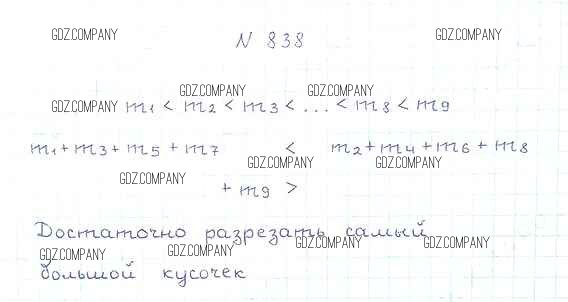 GDZ.COMPANY N 838 GDZ.COMPANY
GDZ.COMPANY GDZ.COMPANY
GDZ.COMPANY m₁ < m₂ < m₃ < ... < m₈ < m₉
m₁ + m₃ + m₅ + m₇ < m₂ + m₄ + m₆ + m₈
GDZ.COMPANY GDZ.COMPANY
GDZ.COMPANY + m₉ >
Достаточно разрезать самый
GDZ.COMPANY GDZ.COMPANY GDZ.COMPANY GDZ.COMPANY
большой кусочек